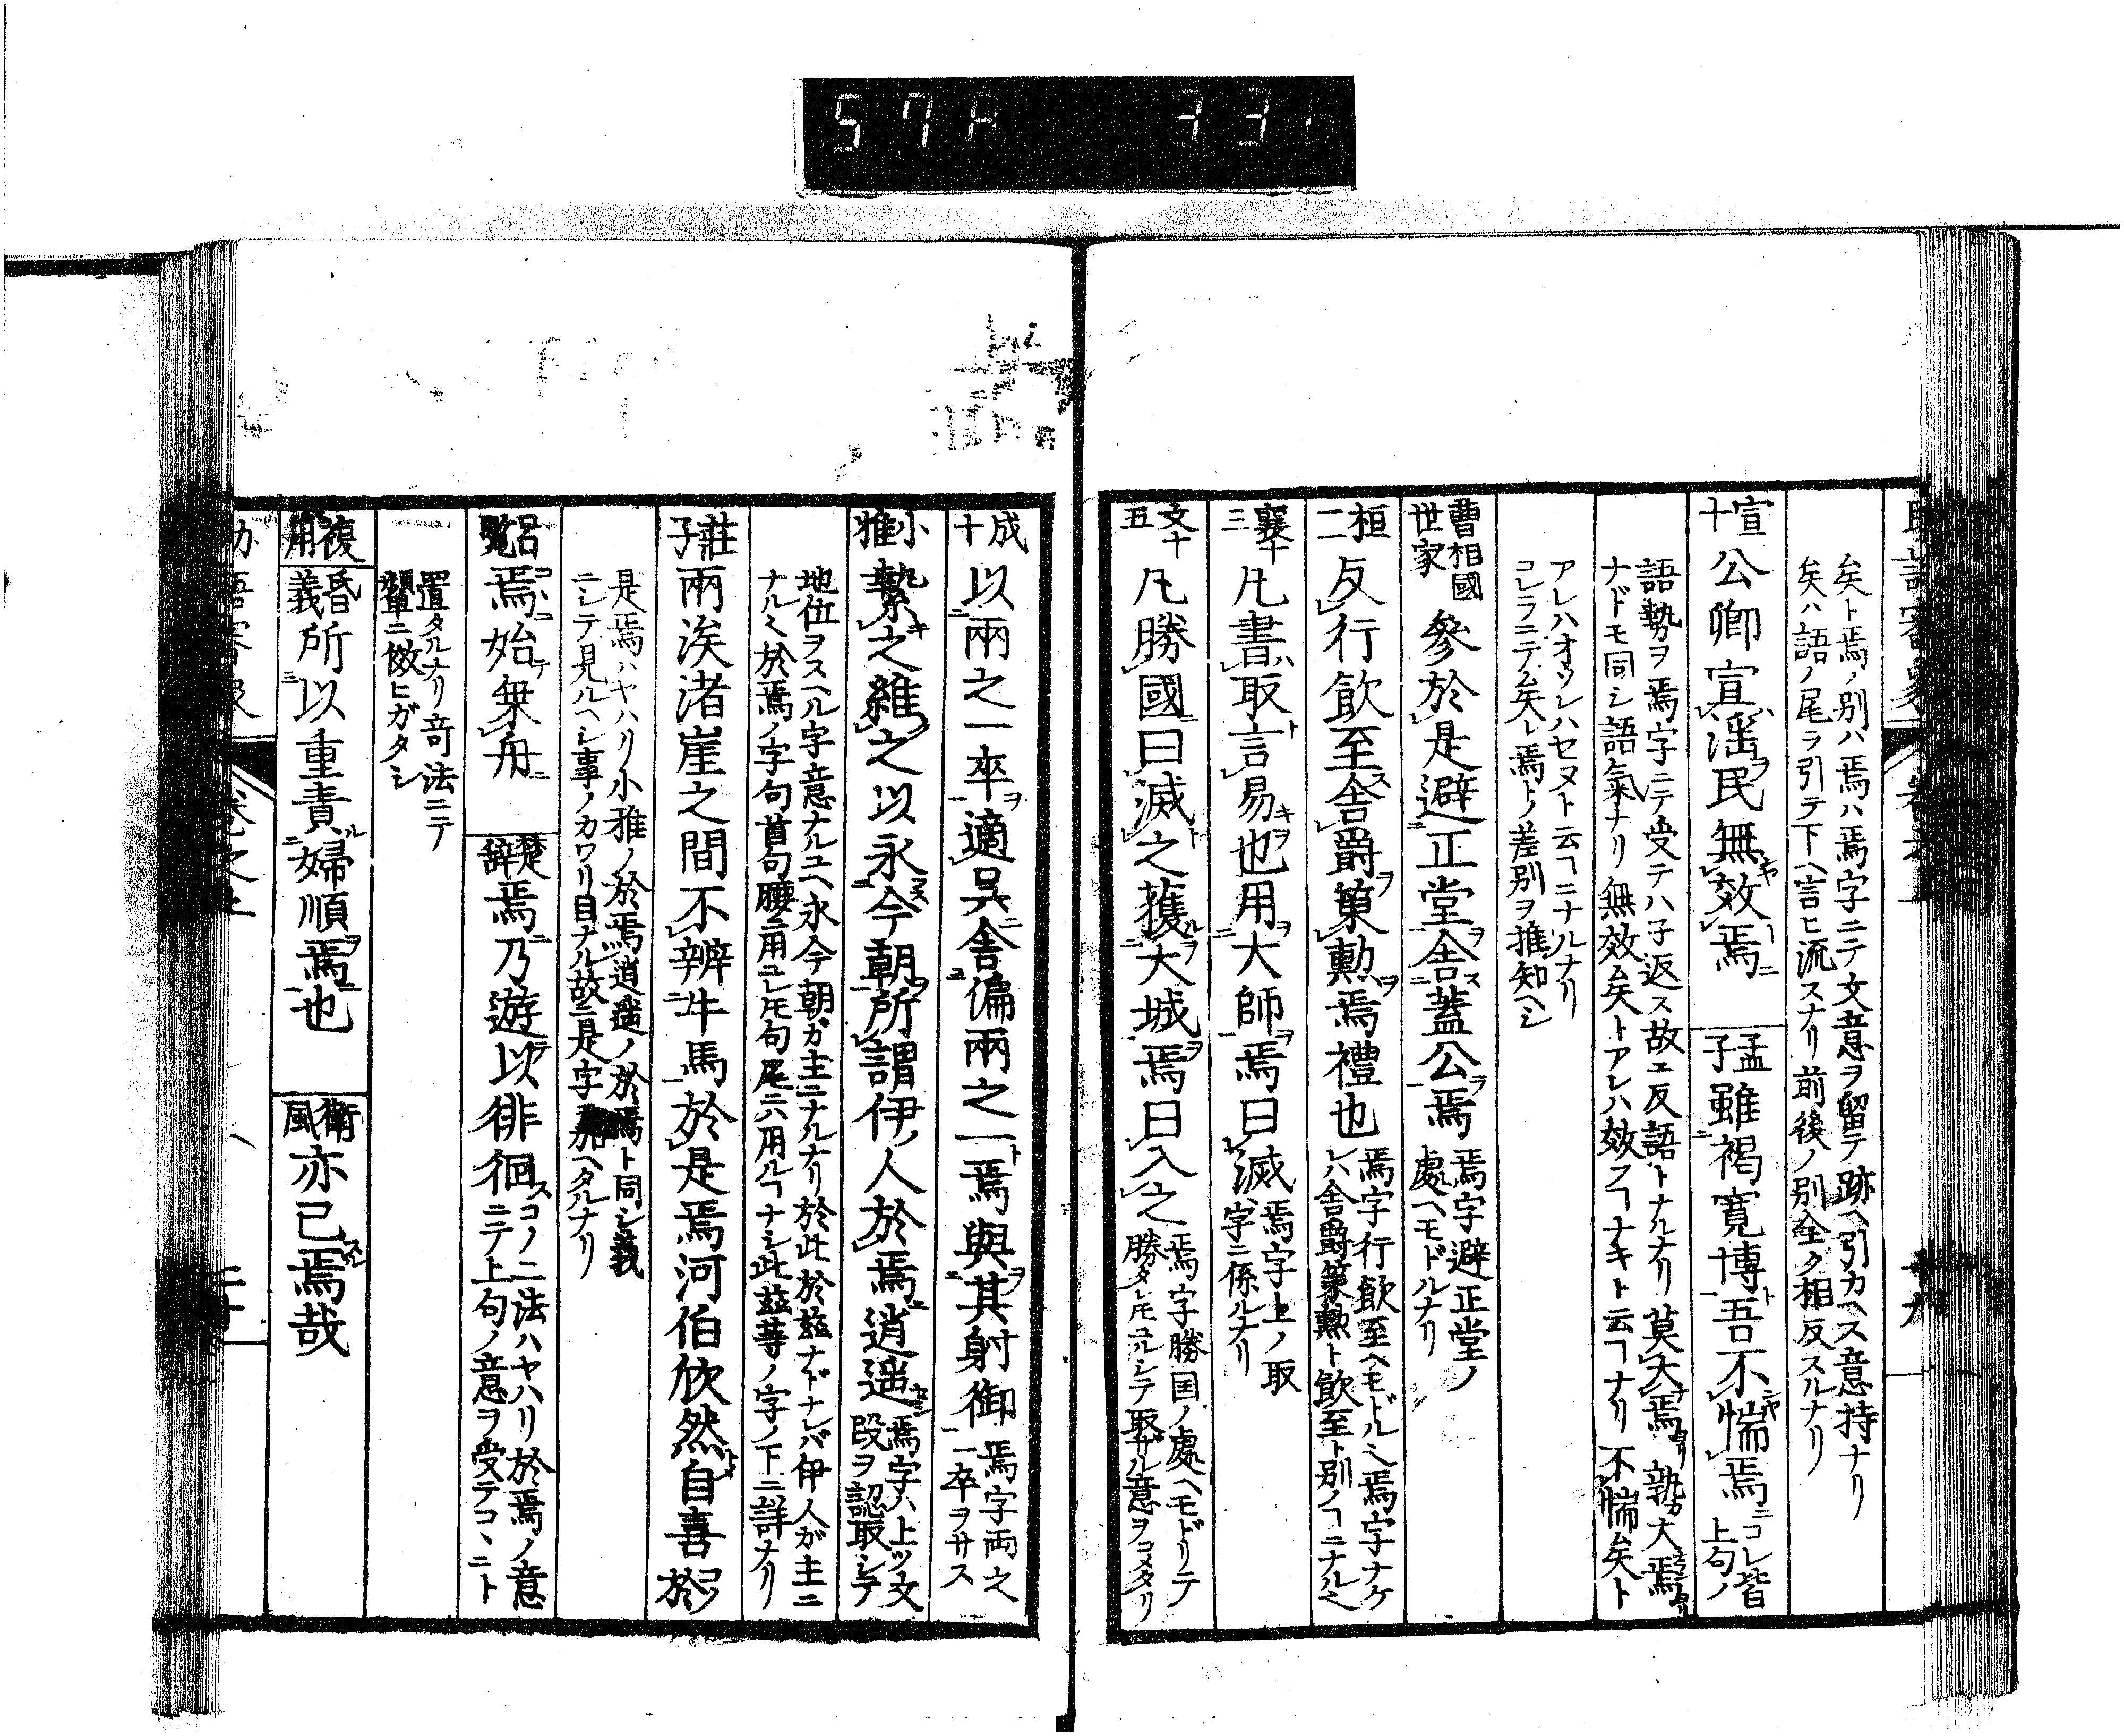 57A 33
矣ト焉ノ別ハ焉ハ焉字ニテ文意ヲ留テ跡ヘ引カヘス意持ナリ
矣ハ語ノ尾ヲ引テ下ヘ言ヒ流スナリ前後ノ別全ク相反スルナリ
宣十 公卿宣淫民無效焉 孟子 雖褐寛博吾不惴焉 コレ皆上句ノ
語勢ヲ焉字ニテ受テハ子返ス故エ反語トナルナリ莫大焉孰大焉
ナドモ同シ語氣ナリ無效矣トアレハ效フヿナキト云ヿナリ不惴矣ト
アレハオソレハセヌト云ヿニナルナリ
コレラニテ矣ト焉トノ差別ヲ推知ヘシ
曹相國世家 參於是避正堂舎蓋公焉 焉字避正堂ノ處ヘモドルナリ
桓二 反行飲至舎爵策勲焉禮也 焉字行飲至ヘモドル也焉字ナケレハ舎爵策勲ト飲至ト別ノヿニナル也
襄十三 凡書取言易也用大師焉曰滅 焉字上ノ取字ニ係ルナリ
文十五 凡勝國曰滅之獲大城焉曰入之 焉字勝国ノ處ヘモドリテ勝タレ𪜈ユルシテ取ザル意ヲコメタリ
成十 以兩之一卒適呉舎偏兩之一焉與其射御 焉字両之一卒ヲサス
小雅 縶之維之以永今朝所謂伊人於焉逍遥 焉字ハ上ツ文段ヲ認取シテ
地位ヲスヘル字意ナルユヘ永今朝ガ主ニナルナリ於此於茲ナドナレバ伊人ガ主ニ
ナルヽ於焉ノ字句首句腰ニ用ユレ𪜈句尾ニハ用ルヿナシ此茲等ノ字ノ下ニ詳ナリ
莊子 兩涘渚崖之間不辨牛馬於是焉河伯欣然自喜 於
是焉ハヤハリ小雅ノ於焉逍遥ノ於焉ト同シ義
ニシテ見ルヘシ事ノカワリ目ナル故ニ是字加ヘタルナリ
呂覧 焉始乗舟 楚辭 焉乃遊以徘徊 コノ二法ハヤハリ於焉ノ意ニテ上句ノ意ヲ受テコヽニト
置タルナリ奇法ニテ
輩ニ傚ヒガタシ
複用 昏義 所以重責婦順焉也 衛風 亦已焉哉